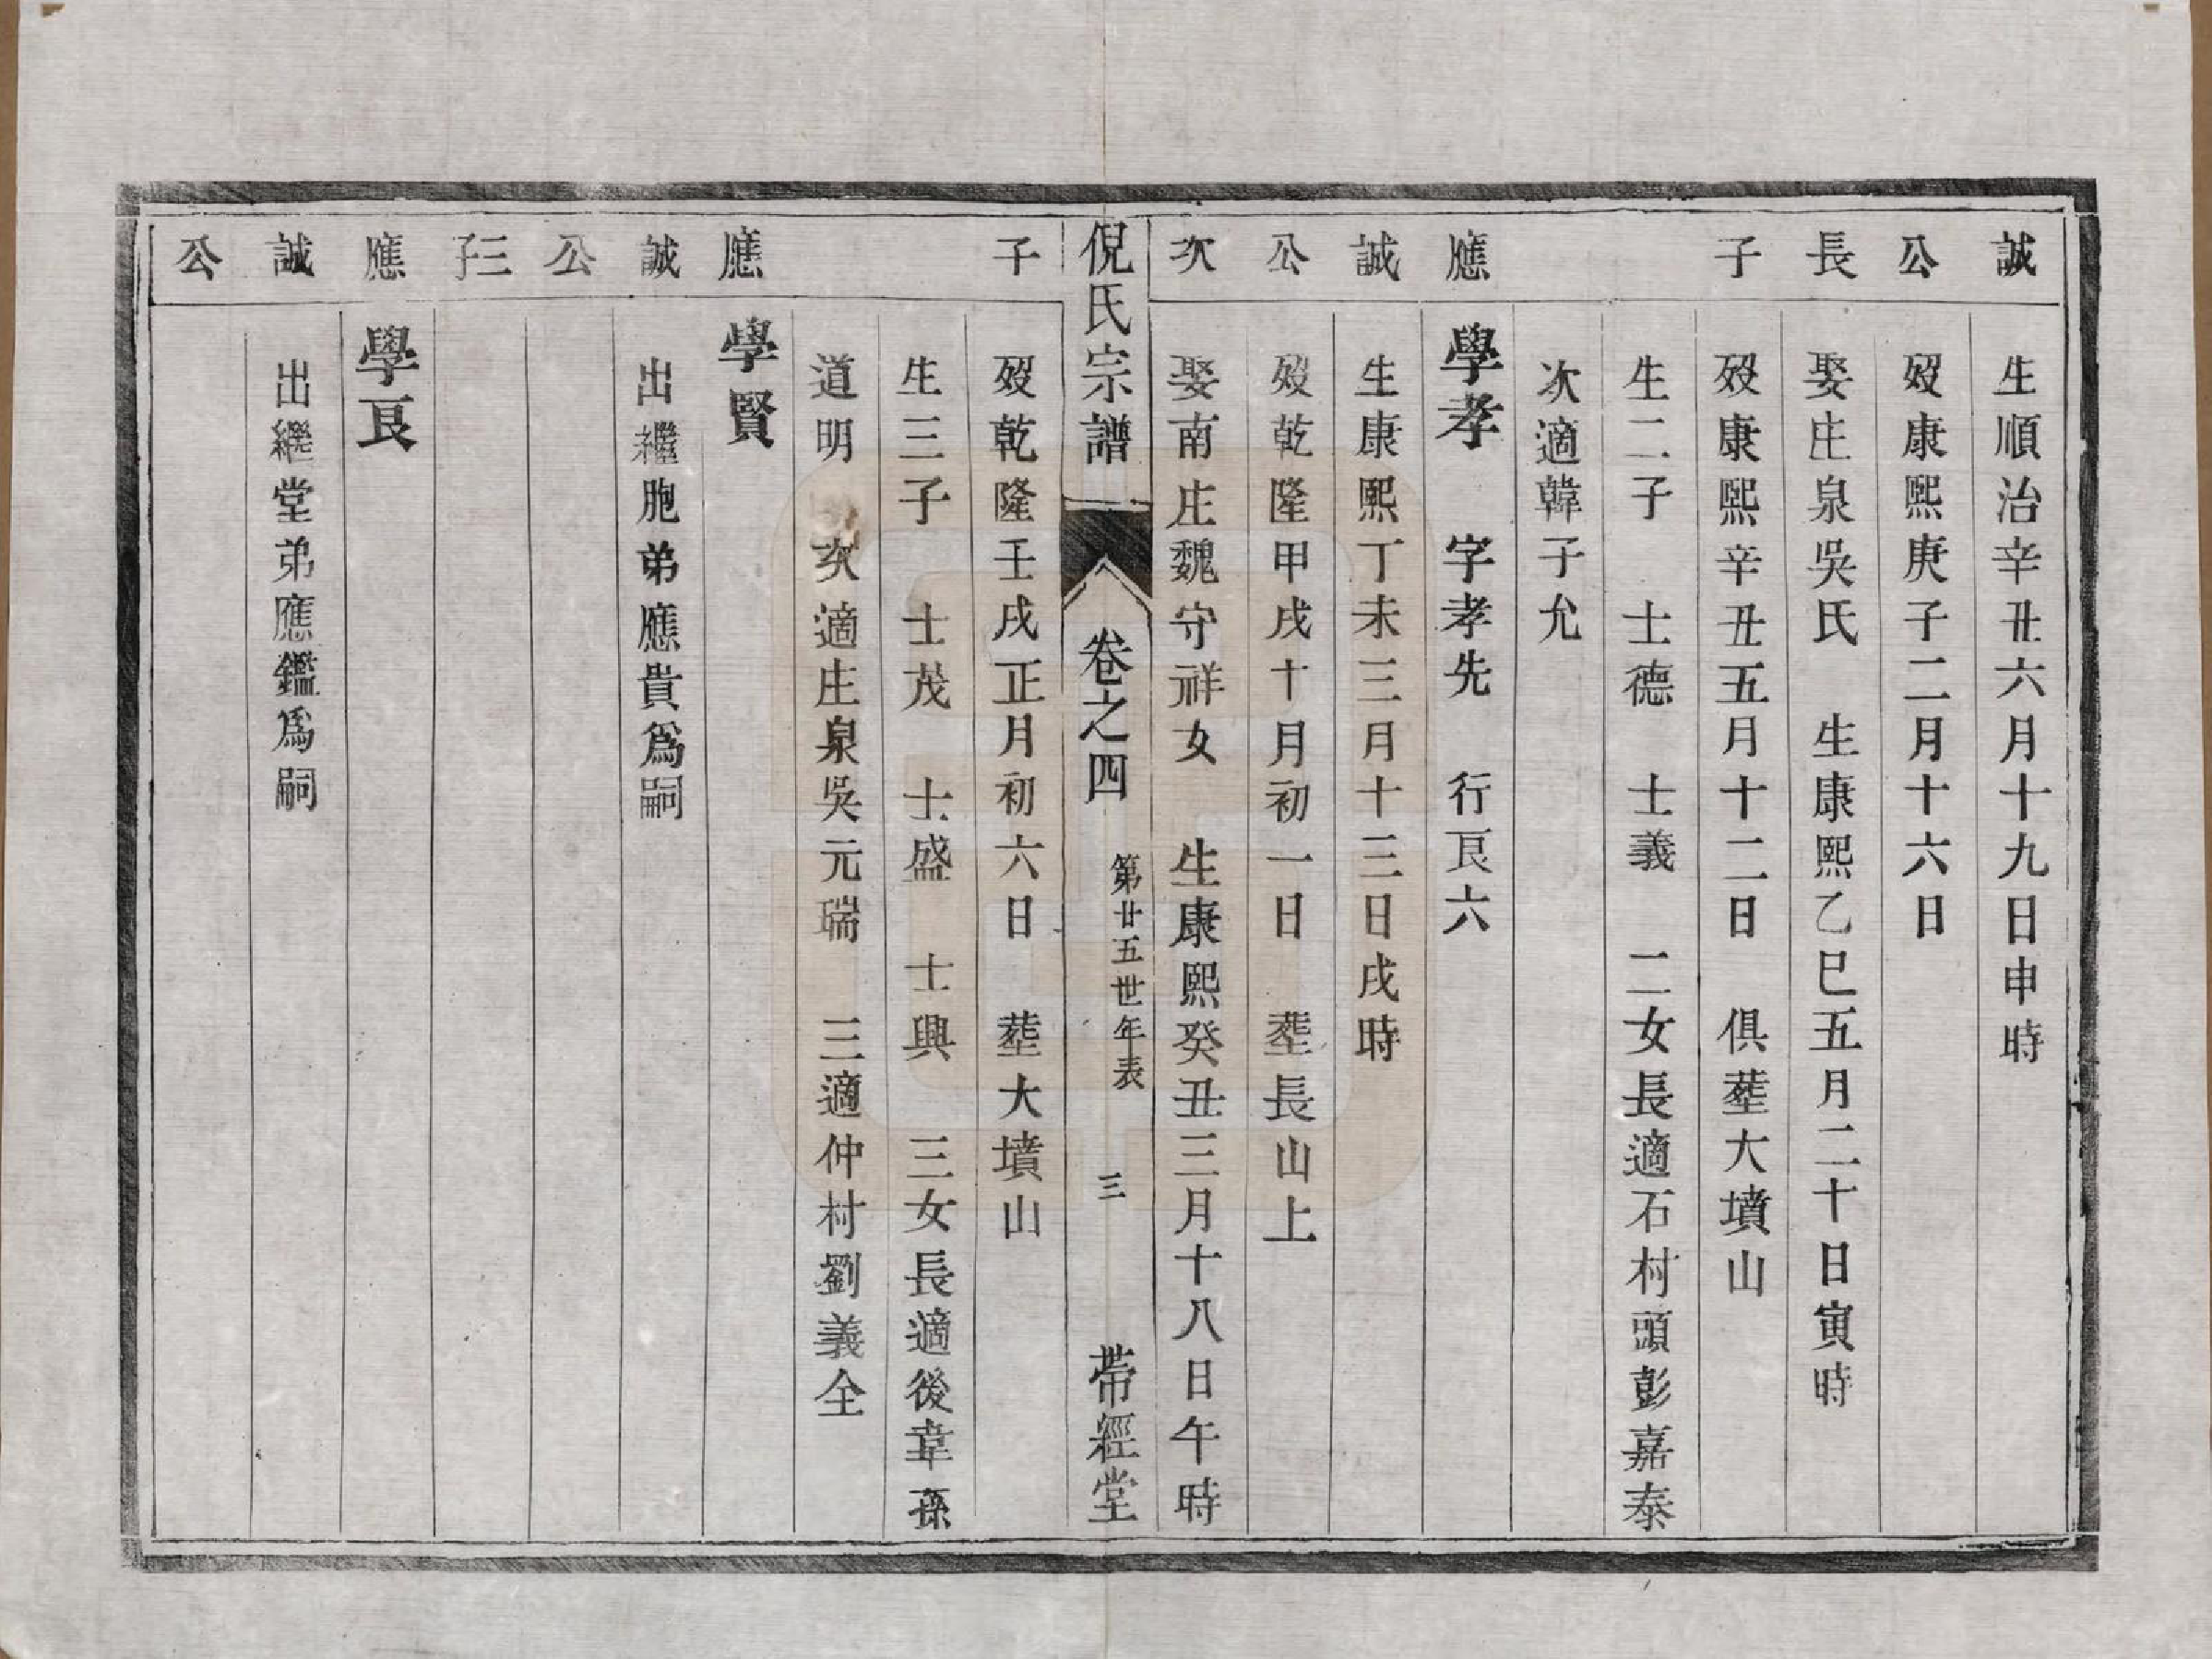 誠 生順治辛丑六月十九日申時
公 歿康熙庚子二月十六日
長 娶庄泉吳氏 生康熙乙巳五月二十日寅時
子 歿康熙辛丑五月十二日 俱塟大墳山
生二子 士德 士義 二女長適石村頭彭嘉泰
次適韓子允
應 學孝 字孝先 行良六
誠 生康熙丁未三月十三日戌時
公 歿乾隆甲戌十月初一日 塟長山上
次 娶南庄魏守祥女 生康熙癸丑三月十八日午時
倪氏宗譜 卷之四 第廿五世年表 三 帶經堂
子 歿乾隆壬戌正月初六日 塟大墳山
生三子 士茂 士盛 士興 三女長適後韋孫
道明 次適庄泉吳元瑞 三適仲村劉義全
應 學賢
誠 出繼胞弟應貴爲嗣
公
三子
應 學良
誠 出繼堂弟應鑑爲嗣
公